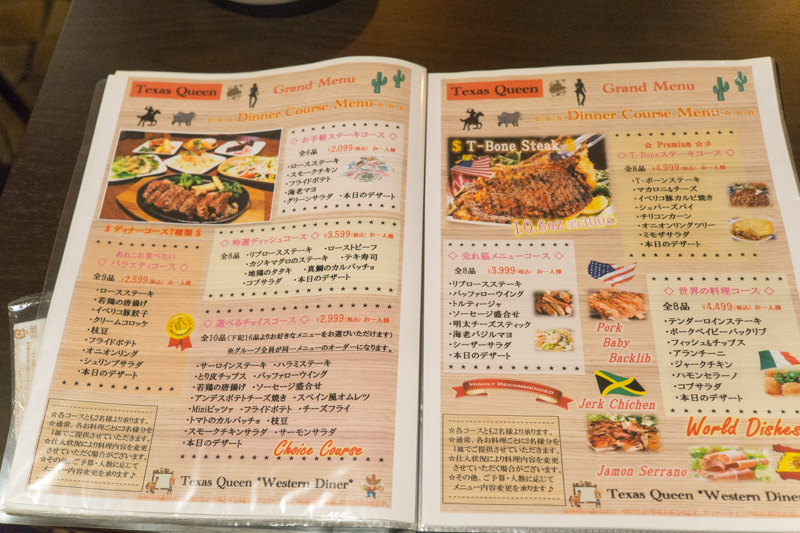 Texas Queen
Grand Menu
Dinner Course Menu
◇ お手軽ステーキコース ◇
全6品 ￥2,099(税込) お一人様
・ロースステーキ
・スモークチキン
・フライドポテト
・海老マヨ
・グリーンサラダ ・本日のデザート
$ ディナーコース7種類 $
◇ 特選ディッシュコース ◇
￥3,599(税込) お一人様
全8品 ・リブロースステーキ ・ローストビーフ
・カジキマグロのステーキ ・テキ寿司
・地鶏のタタキ ・真鯛のカルパッチョ
・コブサラダ ・本日のデザート
あれこれ食べたい
◇ バラエティコース ◇
全9品 ￥2,599(税込) お一人様
・ロースステーキ
・若鶏の唐揚げ
・イベリコ豚餃子
・クリームコロッケ
・枝豆
・フライドポテト
・オニオンリング
・シュリンプサラダ
・本日のデザート
◇ 選べるチョイスコース ◇
￥2,999(税込) お一人様
全10品 (下記16品よりお好きなメニューをお選びいただけます)
※グループ全員が同一メニューのオーダーになります。
・サーロインステーキ ・ハラミステーキ
・とり皮チップス ・バッファローウイング
・若鶏の唐揚げ ・ソーセージ盛合せ
・アンデスポテトチーズ焼き ・スペイン風オムレツ
・Miniピッツァ ・フライドポテト ・チーズフライ
・トマトのカルパッチョ ・枝豆
・スモークチキンサラダ ・サーモンサラダ
・本日のデザート
Choice Course
☆各コースとも2名様より承ります。
☆通常、各お料理ごとに2名様分を
1皿でご提供させていただきます。
☆仕入状況により料理内容を変更
させていただく場合がございます。
☆その他、ご予算・人数に応じて
メニュー内容変更を承ります♪
Texas Queen "Western Diner"
Texas Queen
Grand Menu
Dinner Course Menu
$ T-Bone Steak $
10.6oz
☆ Premium ☆彡
◇ T-Boneステーキコース ◇
全8品 ￥4,999(税込) お一人様
・T-ボーンステーキ
・マカロニ&チーズ
・イベリコ豚カルビ焼き
・シェパーズパイ
・チリコンカーン
・オニオンリングツリー
・ミモザサラダ
・本日のデザート
◇ 売れ筋メニューコース ◇
全8品 ￥3,999(税込) お一人様
・リブロースステーキ
・バッファローウイング
・トルティージャ
・ソーセージ盛合せ
・明太チーズスティック
・海老バジルマヨ
・シーザーサラダ
・本日のデザート
Highly Recommended
Pork
Baby
Backlib
Jerk Chichen
Jamon Serrano
◇ 世界の料理コース ◇
全8品 ￥4,499(税込) お一人様
・テンダーロインステーキ
・ポークベイビーバックリブ
・フィッシュ&チップス
・アランチーニ
・ジャークチキン
・ハモンセラーノ
・コブサラダ
・本日のデザート
World Dishes
☆各コースとも2名様より承ります。
☆通常、各お料理ごとに2名様分を
1皿でご提供させていただきます。
☆仕入状況により料理内容を変更
させていただく場合がございます。
☆その他、ご予算・人数に応じて
メニュー内容変更を承ります♪
Texas Queen "Western Diner